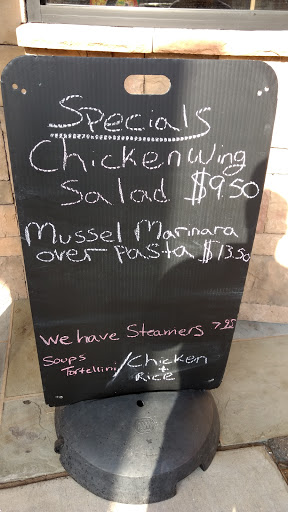 Specials
Chicken Wing
Salad $9.50
Mussel Marinara
over pasta $13.50
We have Steamers 7.95
Soups
Tortellini / Chicken
+ Rice